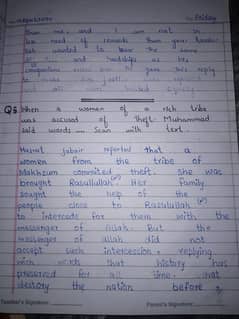 Friday
than me and I am not in
less need of rewards than you. Leader
but wanted to bear the same
and hardships as his
companions gave this reply
Q8 When a woman of a rich tribe
was accused of theft. Muhammad
said words — Scan with text.
Hazrat Jabair reported that a
women from the tribe of
Makhzum commited theft. She was
brought Rasulullah. Her family
sought the help of the
people close to Rasulullah
to intercede for them with the
messenger of Allah. But the
messenger of Allah did not
accept such intercession, replying
with words that history has
preserved for all time. that
destory the nation before
Teacher's Signature: Parent's Signature: